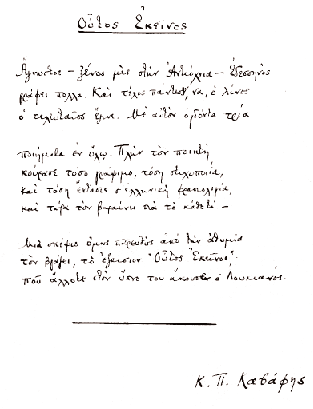 Οὗτος Ἐκεῖνος
Ἄγνωστος — ξένος μὲς στὴν Ἀντιόχεια — Ἐδεσσηνὸς
γράφει πολλά. Καὶ τέλος πάντων, νά, ὁ λίνος
ὁ τελευταῖος ἔγινε. Μὲ αὐτὸν ὀγδόντα τρία
ποιήματα ἐν ὅλῳ. Πλὴν τὸν ποιητὴ
κούρασε τόσο γράψιμο, τόση στιχοποιία,
καὶ τόση ἔντασις σ' ἑλληνικὴ φρασιολογία,
καὶ τώρα τὸν βαραίνει πιὰ τὸ κάθε τί —
Μιὰ σκέψις ὅμως παρευθὺς ἀπὸ τὴν ἀθυμία
τὸν βγάζει, τὸ ἐξαίσιον "Οὗτος Ἐκεῖνος",
ποῦ ἄλλοτε στὸν ὕπνο του ἄκουσεν ὁ Λουκιανός.
Κ. Π. Καβάφης